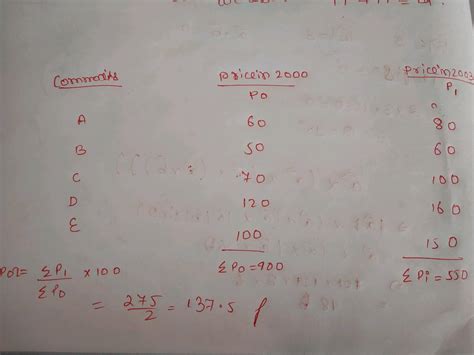 Commodity Price in 2000 Price in 2003
P0 P1
A 60 80
B 50 60
C 70 100
D 120 160
E 100 150
P01 = ΣP1/ΣP0 × 100 ΣP0 = 400 ΣP1 = 550
= 275/2 = 137.5